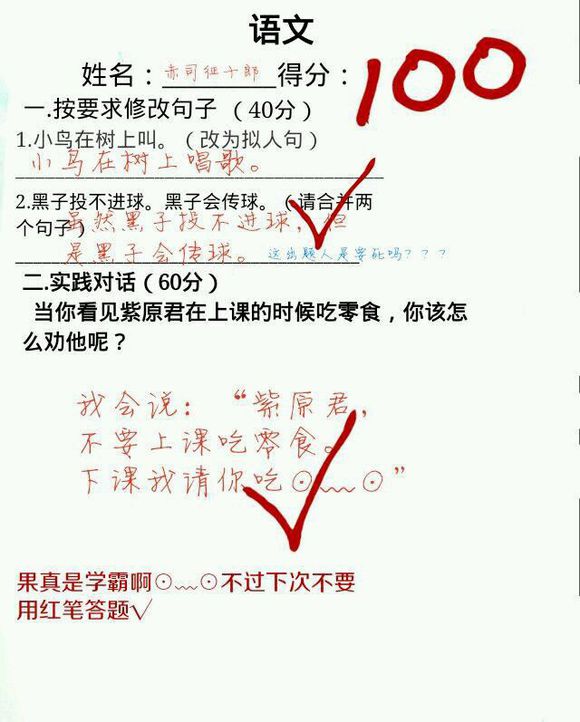 语文
姓名：赤司征十郎得分：100
一.按要求修改句子（40分）
1.小鸟在树上叫。（改为拟人句）
小鸟在树上唱歌。
2.黑子投不进球。黑子会传球。（请合并两
个句子）
虽然黑子投不进球，但
是黑子会传球。这出题人是要死吗？？？
二.实践对话（60分）
当你看见紫原君在上课的时候吃零食，你该怎
么劝他呢？
我会说：“紫原君，
不要上课吃零食。
下课我请你吃⊙﹏⊙”
果真是学霸啊⊙﹏⊙不过下次不要
用红笔答题√